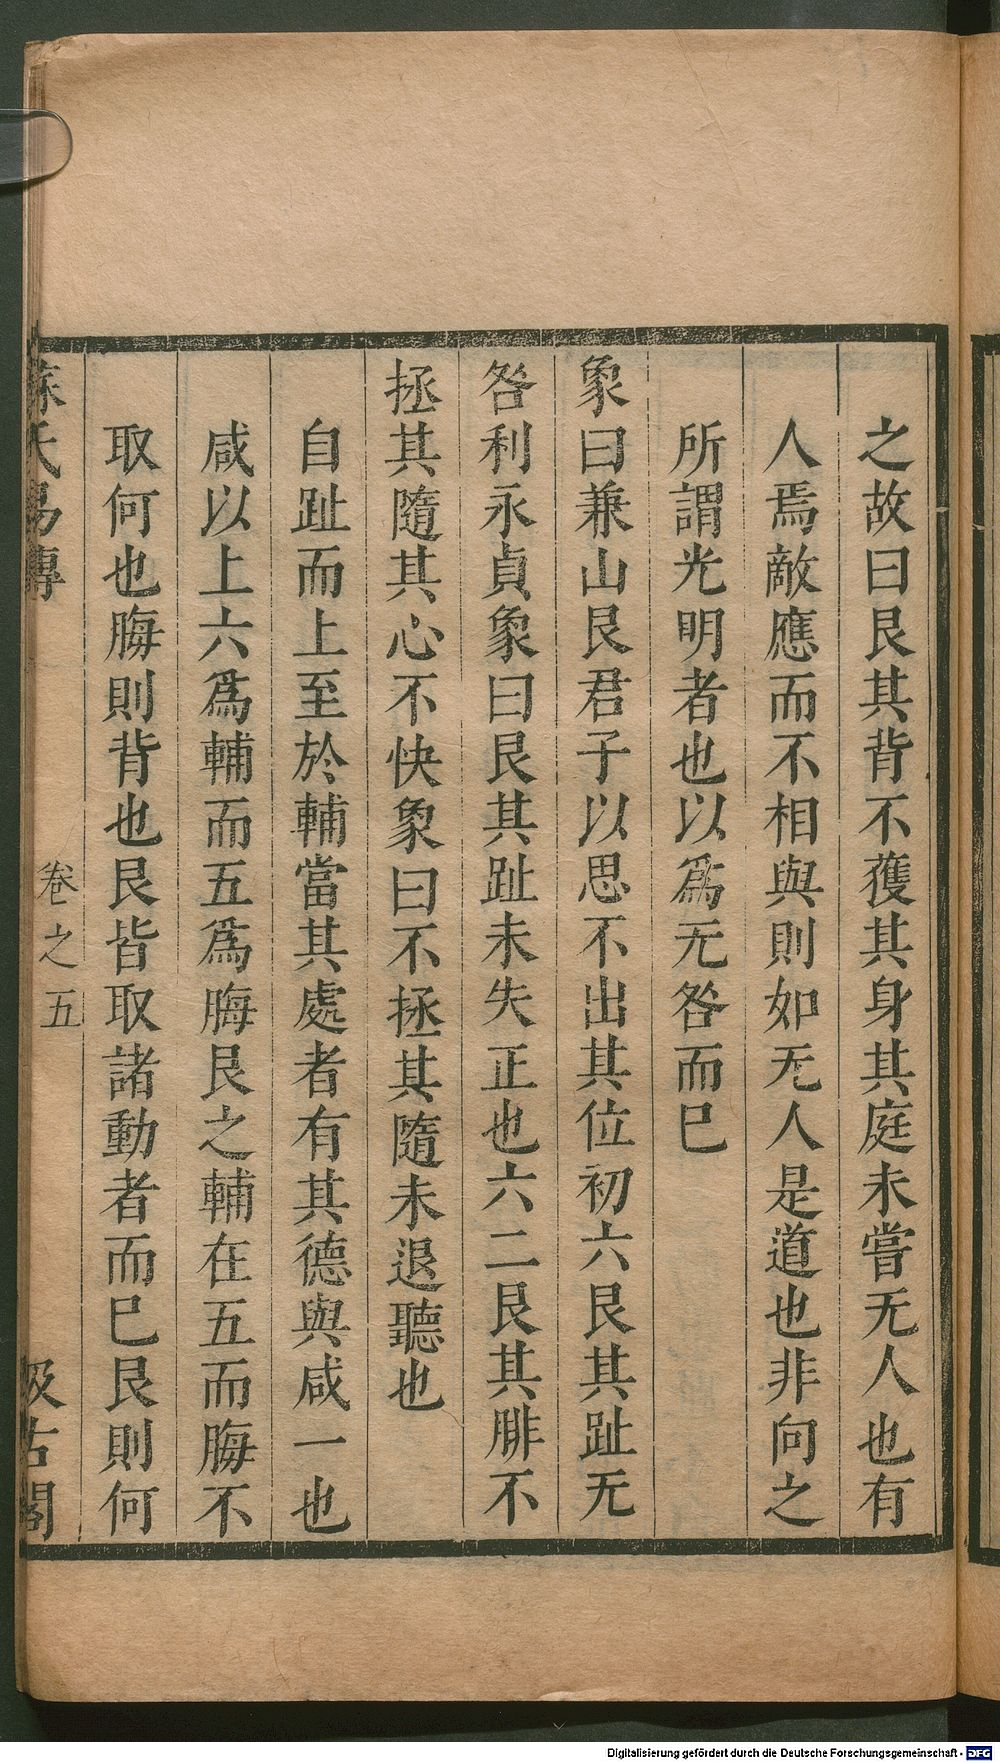 之故曰艮其背不獲其身其庭未嘗无人也有
人焉敵應而不相與則如无人是道也非向之
所謂光明者也以爲无咎而巳
象曰兼山艮君子以思不出其位初六艮其趾无
咎利永貞象曰艮其趾未失正也六二艮其腓不
拯其隨其心不快象曰不拯其隨未退聽也
自趾而上至於輔當其處者有其德與咸一也
咸以上六爲輔而五爲脢艮之輔在五而脢不
取何也脢則背也艮皆取諸動者而巳艮則何
蘇氏易傳 卷之五 汲古閣
Digitalisierung gefördert durch die Deutsche Forschungsgemeinschaft - DFG